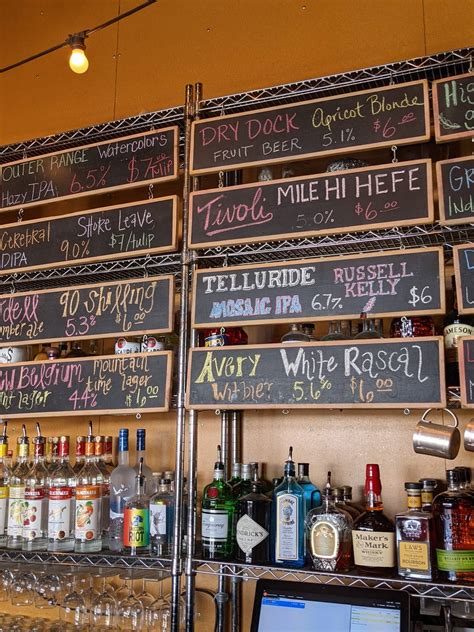 OUTER RANGE Watercolors
Hazy IPA 6.5% $7/TULIP
Cerebral Shoke Leave
DIPA 9.0% $7/Tulip
dell 90 Shilling
mber ale 5.3% $6.00
w Belgium Mountain time lager
nt lager 4.4% $6.00
DRY DOCK Apricot Blonde
FRUIT BEER 5.1% $6.00
Tivoli MILE HI HEFE
5.0% $6.00
TELLURIDE RUSSELL KELLY
MOSAIC IPA 6.7% $6
Avery White Rascal
Witbier 5.6% $6.00
Hi
Gr
Ind
RIOT
HENDRICK'S
Maker's Mark
LAWS